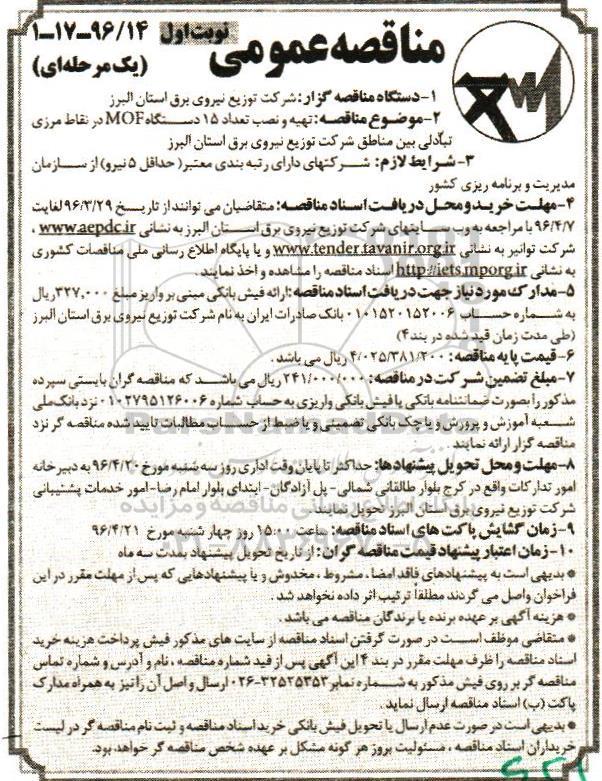 مناقصه عمومی نوبت اول ۹۶/۱۴-۱۷-۱
(یک مرحله‌ای)
۱-دستگاه مناقصه گزار: شرکت توزیع نیروی برق استان البرز
۲-موضوع مناقصه: تهیه و نصب تعداد ۱۵ دستگاه MOF در نقاط مرزی
تبادلی بین مناطق شرکت توزیع نیروی برق استان البرز
۳-شرایط لازم: شرکتهای دارای رتبه بندی معتبر( حداقل ۵ نیرو) از سازمان
مدیریت و برنامه ریزی کشور
۴-مهلت خرید و محل دریافت اسناد مناقصه: متقاضیان می توانند از تاریخ ۹۶/۳/۲۹ لغایت
۹۶/۴/۷ با مراجعه به وب سایتهای شرکت توزیع نیروی برق استان البرز به نشانی www.aepdc.ir ،
شرکت توانیر به نشانی www.tender.tavanir.org.ir و یا پایگاه اطلاع رسانی ملی مناقصات کشوری
به نشانی http://iets.mporg.ir اسناد مناقصه را مشاهده و اخذ نمایند .
۵-مدارک مورد نیاز جهت دریافت اسناد مناقصه: ارائه فیش بانکی مبنی بر واریز مبلغ ۳۲۷,۰۰۰ ریال
به شماره حساب ۰۱۰۱۵۲۰۱۵۲۰۰۶ بانک صادرات ایران به نام شرکت توزیع نیروی برق استان البرز
(طی مدت زمان قید شده در بند ۴)
۶-قیمت پایه مناقصه: ۴/۰۲۵/۳۸۱/۲۰۰ ریال می باشد .
۷-مبلغ تضمین شرکت در مناقصه: ۲۴۱/۰۰۰/۰۰۰ ریال می باشد که مناقصه گران بایستی سپرده
مذکور را بصورت ضمانتنامه بانکی یا فیش بانکی واریزی به حساب شماره ۰۱۰۲۷۹۵۱۲۶۰۰۶ نزد بانک ملی
شعبه آموزش و پرورش و یا چک بانکی تضمینی و یا ضبط از حساب مطالبات تایید شده مناقصه گر نزد
مناقصه گزار ارائه نمایند .
۸-مهلت و محل تحویل پیشنهادها: حداکثر تا پایان وقت اداری روز سه شنبه مورخ ۹۶/۴/۲۰ به دبیرخانه
امور تدارکات واقع در کرج بلوار طالقانی شمالی- پل آزادگان-ابتدای بلوار امام رضا-امور خدمات پشتیبانی
شرکت توزیع نیروی برق استان البرز تحویل نمایند.
۹-زمان گشایش پاکت های اسناد مناقصه: ساعت ۱۵:۰۰ روز چهار شنبه مورخ ۹۶/۴/۲۱
۱۰-زمان اعتبار پیشنهاد قیمت مناقصه گران: از تاریخ تحویل پیشنهاد بمدت سه ماه
* بدیهی است به پیشنهادهای فاقد امضاء ، مشروط ، مخدوش و یا پیشنهادهایی که پس از مهلت مقرر در این
فراخوان واصل می گردند مطلقاً ترتیب اثر داده نخواهد شد .
* هزینه آگهی بر عهده برنده یا برندگان مناقصه می باشد .
* متقاضی موظف است در صورت گرفتن اسناد مناقصه از سایت های مذکور فیش پرداخت هزینه خرید
اسناد مناقصه را ظرف مهلت مقرر در بند ۴ این آگهی پس از قید شماره مناقصه ، نام و آدرس و شماره تماس
مناقصه گر بر روی فیش مذکور به شماره نمابر ۳۲۵۲۵۳۵۳-۰۲۶ ارسال و اصل آن را نیز به همراه مدارک
پاکت (ب) اسناد مناقصه ارسال نماید.
* بدیهی است در صورت عدم ارسال یا تحویل فیش بانکی خرید اسناد مناقصه و ثبت نام مناقصه گر در لیست
خریداران اسناد مناقصه ، مسئولیت بروز هر گونه مشکل بر عهده شخص مناقصه گر خواهد بود.